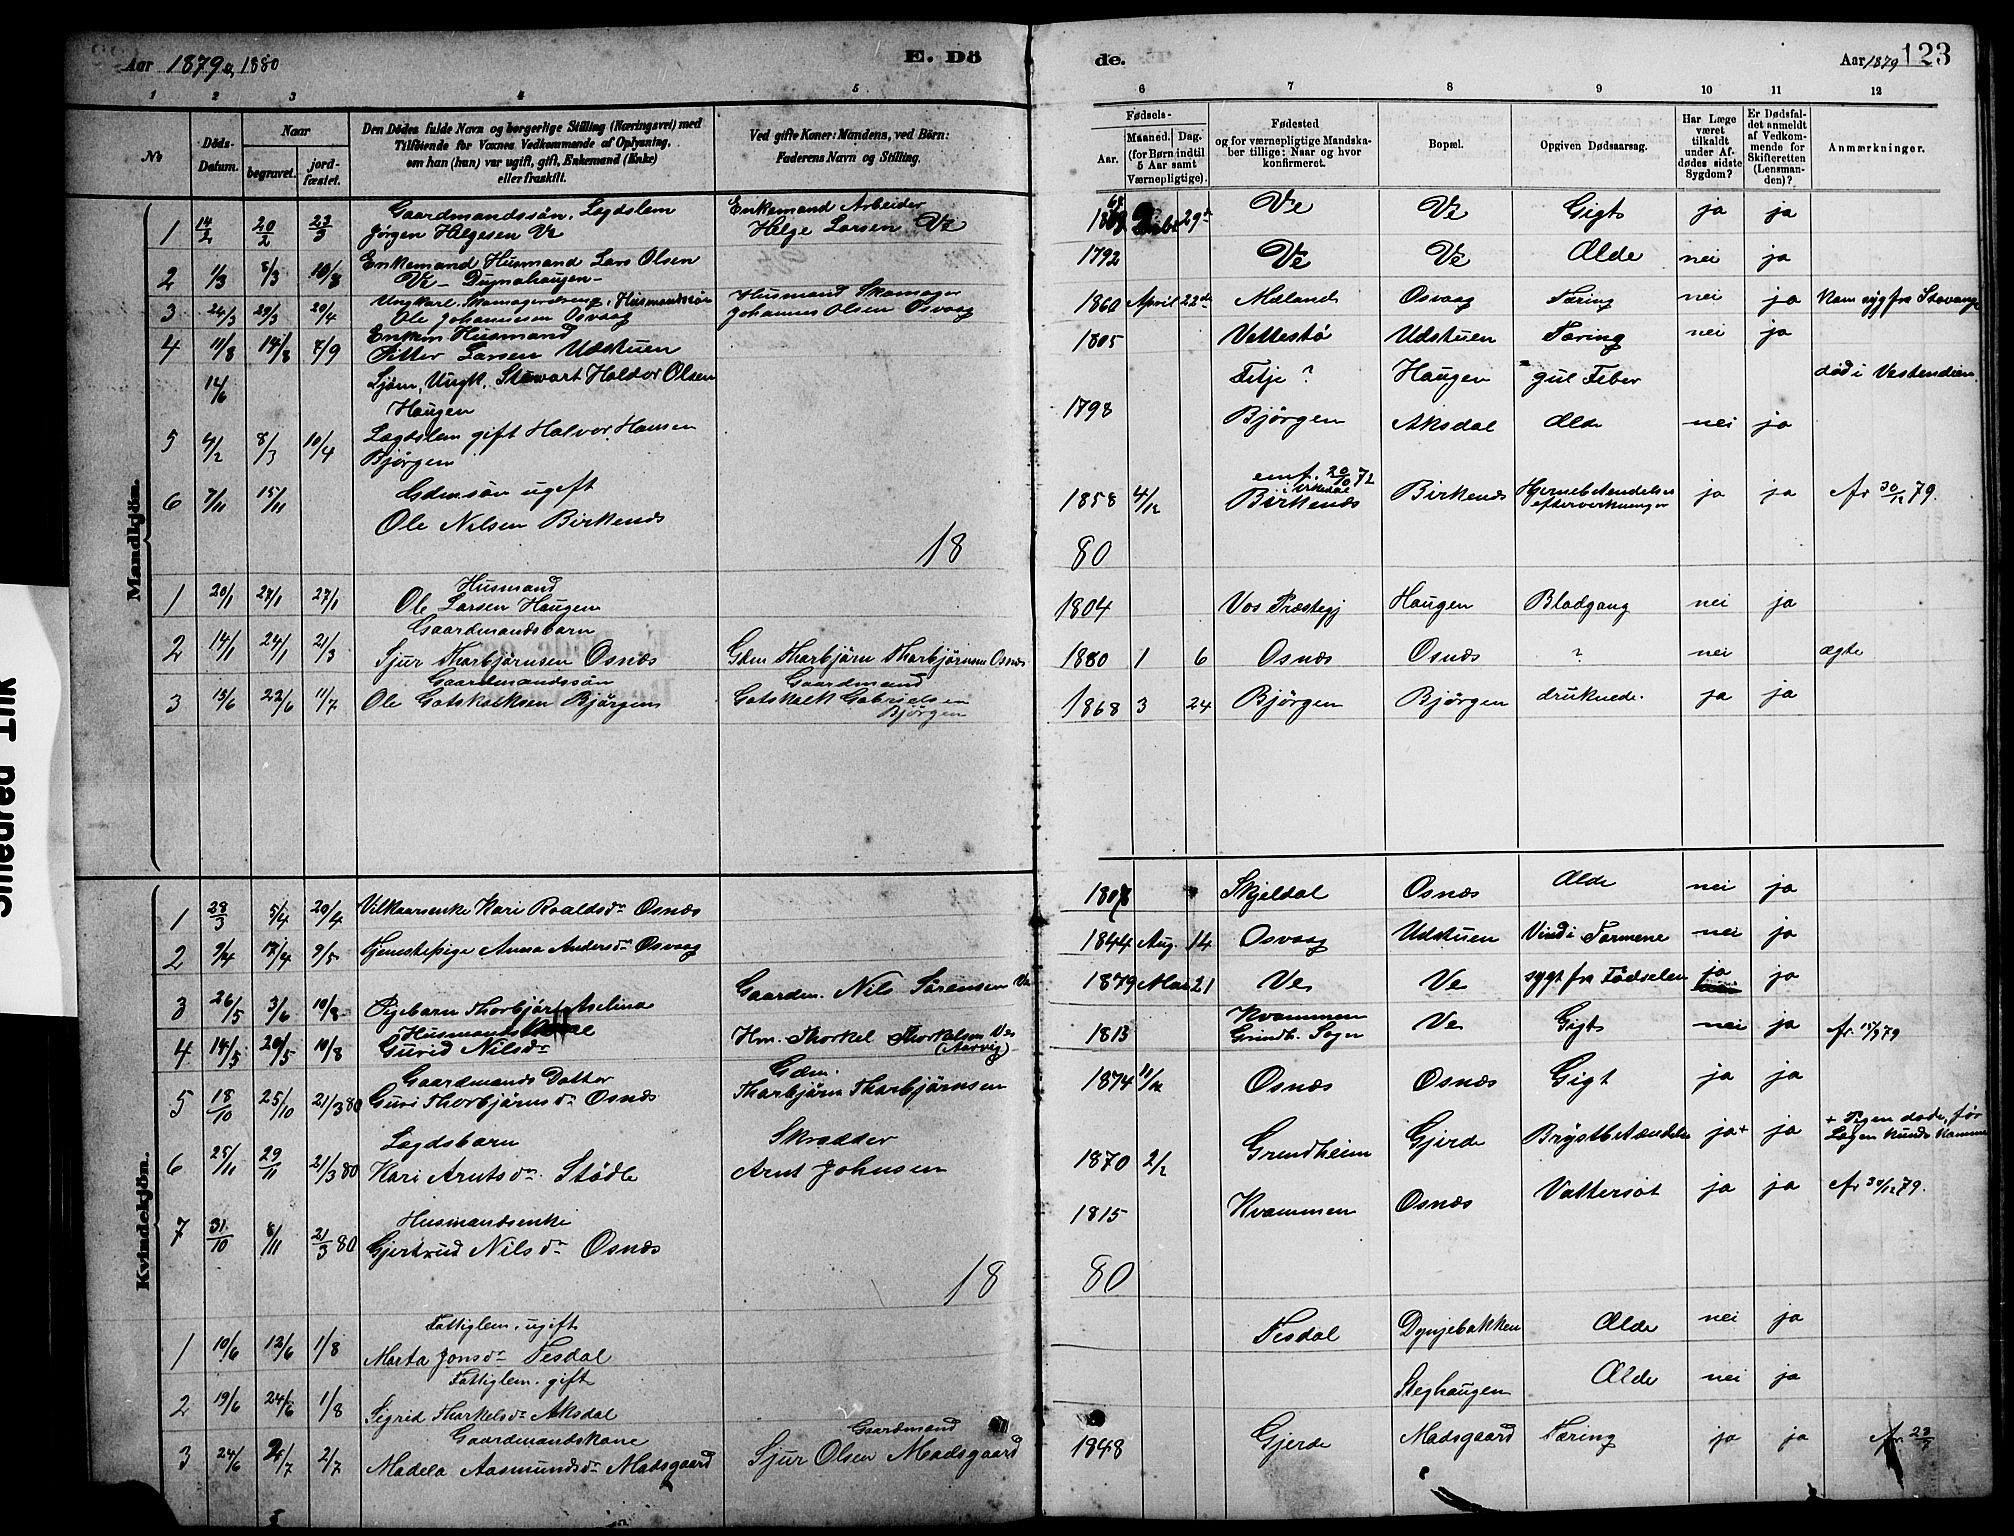 Aar 1879 o, 1880
E. Dö
de.
Aar 1879
123
1 2 3 4 5
6 7 8 9 10 11 12
No
Döds-
Datum.
Naar
begravet.
jord-
fæstet.
Den Dödes fulde Navn og borgerlige Stilling (Næringsvei) med
Tilföiende for Voxnes Vedkommende af Oplysning,
om han (hun) var ugift, gift, Enkemand (Enke)
eller fraskilt.
Ved gifte Koner: Mandens, ved Börn:
Faderens Navn og Stilling.
Fødsels-
Aar.
Maaned. Dag.
(for Børn indtil
5 Aar samt
Værnepligtige).
Fødested
og for værnepligtige Mandska-
ber tillige: Naar og hvor
konfirmeret.
Bopæl.
Opgiven Dødsaarsag.
Har Læge
været
tilkaldt
under Af-
dødes sidste
Sygdom?
Er Dødsfal-
det anmeldt
af Vedkom-
mende for
Skifteretten
(Lensman-
den)?
Anmærkninger.
Mandkjön.
Gaardmandssøn, Lægdslem Enkemand Arbeider
1 14/2 20/2 23/3 Jørgen Helgesen Ve Helge Larsen Ve 29de Ve Ve Gigt ja ja
Enkemand Husmand Lars Olsen
2 1/3 8/3 10/8 Ve - 1792 Ve Ve Ælde nei ja
Ungkarl, Husmandssøn Husmand Skomager
3 24/3 29/3 20/4 Ole Johannesen Osvaag Johannes Olsen Osvaag 1860 April 22de Mæland Osvaag Tæring nei ja Kom syg fra Stavanger
Enkem Husmand
4 11/8 14/8 7/9 Pitter Larsen Udstuen 1805 Vattestø Udstuen Tæring nei ja
14/6 Sjøm. Ungk. Stewart Haldor Olsen
Haugen Fitje? Haugen gul Feber død i Vestendien
5 4/2 8/3 10/4 Lægdslem gift Halvor Hansen
Bjørgen 1798 Bjørgen Aksdal Ælde nei ja
6 7/11 15/11 Gdmsøn ugift
Ole Nilsen Birkenes 1858 4/12 Birkenes Birkenes Hjernebetændelse ja ja Afr 30/12 79.
conf. 20/10 72
eftervirkninger
18 80
Husmand
1 20/1 27/1 27/1 Ole Larsen Haugen 1804 Vos Præstegj Haugen Blodgang nei ja
Gaardmandsbarn
2 14/1 24/1 21/3 Sjur Thorbjørnsen Osnæs Gdm Thorbjørn Thorbjørnsen Osnæs 1880 1 6 Osnæs Osnæs ? nei ægte
Gaardmandssøn Gaardmand
3 13/6 22/6 11/7 Ole Gotskalksen Bjørgen Gotskalk Gabrielsen
Bjørgen 1868 3 24 Bjørgen Bjørgen druknede. ja ja
Kvindekjön.
1 28/3 5/4 20/4 Vilkaarsenke Kari Roaldsdr Osnæs 1807 Skjeldal Osnæs Ælde nei ja
2 9/4 17/4 9/5 Tjenestepige Anna Andersdr Osvaag 1844 Aug. 14 Osvaag Udstuen Vind i Tarmene nei ja
3 26/5 3/6 10/8 Pigebarn Thorbjør Aselina Gaardm. Nils Sørensen Ve 1879 Mai 21 Ve Ve sygt fra Fødselen ja ja
4 14/5 20/5 10/8 Husmands
Guvid Nilsdr Hm. Thorkel Thorkelsen Ve
(Aarvig) 1813 Kvammen
Grindh. Sogn Ve Gigt nei ja Afr 15/9 79
Gaardmands Datter Gdm.
5 18/10 25/10 21/3 80 Guri Thorbjørnsdr Osnæs Thorbjørn Thorbjørnsen 1874 11/12 Osnæs Osnæs Gigt ja ja
Lægdsbarn Skrædder
6 25/11 29/11 21/3 80 Kari Arntsdr Stødle Arnt Johnsen 1870 2/2 Grindheim Gjerde Brystbetændelse ja+ ja + Pigen døde, før
Lægen kunde komme
Husmandsenke
7 31/10 8/11 21/3 80 Gjertrud Nilsdr Osnæs 1815 Kvammen Osnæs Vattersot ja ja Afr 30/12 79.
18 80
Fattiglem, ugift
1 10/6 12/6 1/8 Marta Jonsdr Tesdal Tesdal Dynjebakken Ælde nei ja
Fattiglem, gift
2 19/6 24/6 1/8 Sigrid Thorkelsdr Aksdal Steghaugen Ælde nei ja
Gaardmandskone Gaardmand
3 24/6 2/7 2/7 Madela Aasmundsdr Madsgaard Sjur Olsen Madsgaard 1848 Gjerde Madsgaard Tæring ja ja